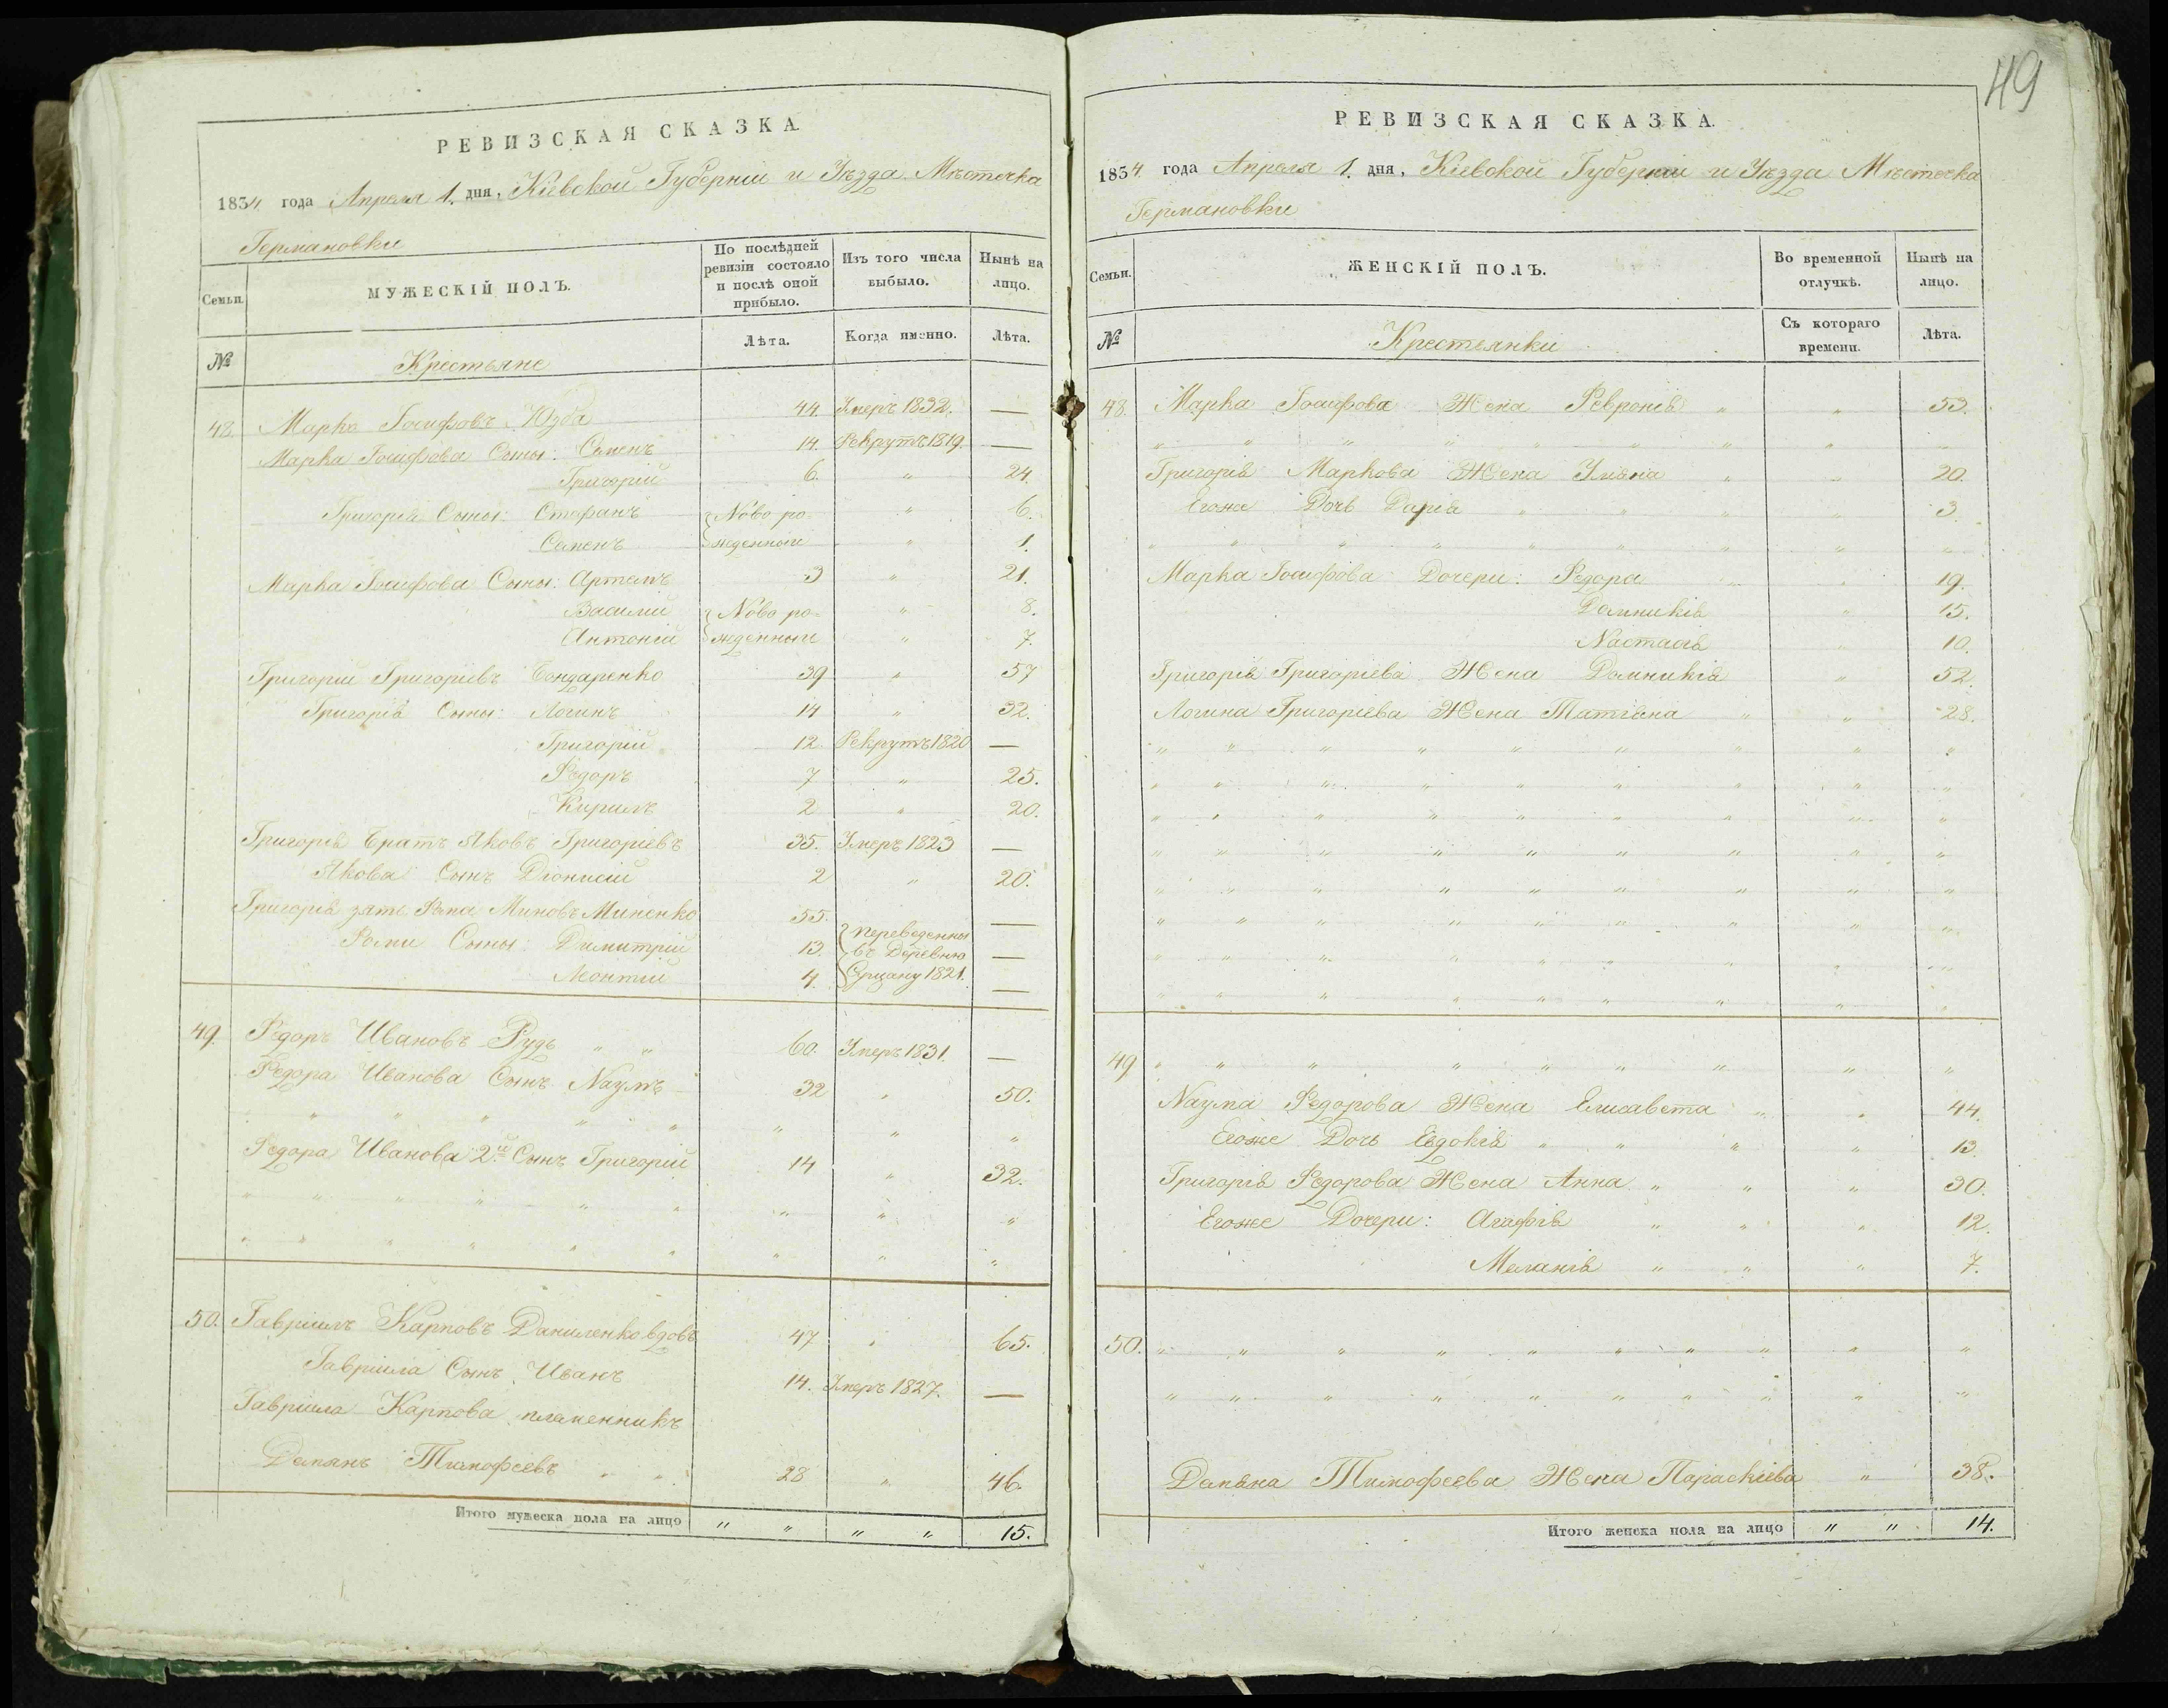 РЕВИЗСКАЯ СКАЗКА.
1834 года Апреля 1. дня, Кіевской Губерніи и Уѣзда Мѣстечка
Германовки
Семьи.
МУЖЕСКІЙ ПОЛЪ.
По послѣдней ревизіи состояло и послѣ оной прибыло.
Изъ того числа выбыло.
Нынѣ на лицо.
№
Крестьяне
Лѣта.
Когда именно.
Лѣта.
48. Марко Іосифовъ Юзба 44. Умеръ 1832. —
Марка Іосифова Сыны: Семенъ 14. Рекрутъ 1819. —
Григорій 6. " 24.
Григорія Сыны: Стефанъ Ново ро- " 6.
Семенъ жденныи " 1.
Марка Іосифова Сыны: Артемъ 3 " 21.
Василій Ново ро- " 8.
Антоній жденныи " 7.
Григорій Григоріевъ Бондаренко 39 " 57
Григорія Сыны: Логинъ 14 " 32.
Григорій 12 Рекрутъ 1820 —
Ѳедоръ 7 " 25.
Кирилъ 2 " 20.
Григорія Братъ Яковъ Григоріевъ 35. Умеръ 1823 —
Якова Сынъ Діонисій 2 " 20.
Григорія зять Фома Миновъ Миненко 55. —
Фомы Сыны: Димитрій 13. переведенны въ Деревню —
Леонтій 4. 1821. —
49. Ѳедоръ Ивановъ Рудь " " 60. Умеръ 1831. —
Ѳедора Иванова Сынъ Наумъ 32 " 50.
" " " " " " " "
Ѳедора Иванова 2й Сынъ Григорій 14 " 32.
" " " " " " " " "
" " " " " " " " "
50. Гавріилъ Карповъ Даниленко вдовъ 47 " 65.
Гавріила Сынъ Иванъ 14. Умеръ 1827. —
Гавріила Карпова племенникъ
Демянъ Тимофеевъ " " 28 " 46.
Итого мужеска пола на лицо " " " " 15.
49
РЕВИЗСКАЯ СКАЗКА.
1834 года Апреля 1. дня, Кіевской Губерніи и Уѣзда Мѣстечка
Германовки
Семьи.
ЖЕНСКІЙ ПОЛЪ.
Во временной отлучкѣ.
Нынѣ на лицо.
№
Крестьянки
Съ котораго времени.
Лѣта.
48. Марка Іосифова Жена Февронія " " 53.
" " " " " " " " "
Григорія Маркова Жена Уляна " " 20.
Егоже Дочь Дарія " " " " 3
" " " " " " " " "
Марка Іосифова Дочери: Ѳедора " " 19.
Домникія " 15.
Настасія " 10.
Григорія Григоріева Жена Домникія " 52.
Логина Григоріева Жена Татіана " " 28.
" " " " " " " " "
" " " " " " " " "
" " " " " " " " "
" " " " " " " " "
" " " " " " " " "
" " " " " " " " "
" " " " " " " " "
" " " " " " " " "
49 " " " " " " " " "
Наума Ѳедорова Жена Елисавета " " 44.
Егоже Дочь Евдокія " " " " 13.
Григорія Ѳедорова Жена Анна " " " 30.
Егоже Дочери: Агафія " " " 12.
Меланія " " " 7.
50. " " " " " " " " " "
" " " " " " " " " "
Демяна Тимофеева Жена Параскіева " 38.
Итого женска пола на лицо " " 14.